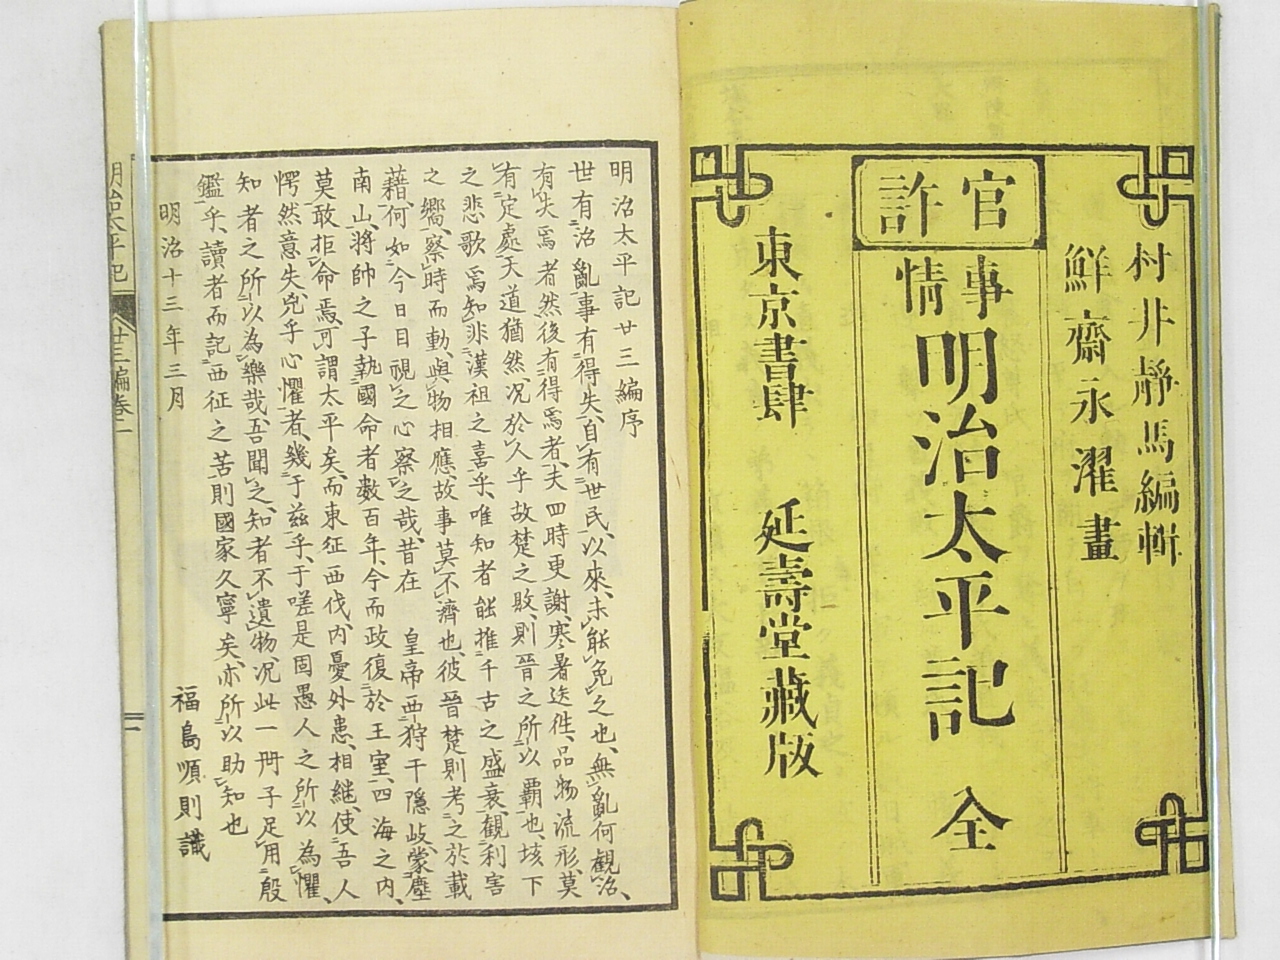 村井靜馬編輯
鮮齋永濯畫
官許
事情
明治太平記 全
東京書肆 延壽堂藏版
明治太平記廿三編序
世有治亂事有得失自有世民以來未能免之也無亂何觀治
有失焉者然後有得焉者夫四時更謝寒暑迭徃品物流形莫
有定處天道猶然況於人乎故楚之敗則晉之所以覇也垓下
之悲歌焉知非漢祖之喜乎唯知者能推千古之盛衰觀利害
之嚮察時而動與物相應故事莫不濟也彼晉楚則考之於載
藉何如今日目視之心察之哉昔在 皇帝西狩干隱岐蒙塵
南山將帥之子執國命者數百年今而政復於王室四海之内
莫敢拒命焉可謂太平矣而東征西伐内憂外患相継使吾人
愕然意失兇乎心懼者幾于兹乎于嗟是固愚人之所以為懼
知者之所以為樂哉吾聞之知者不遺物况此一冊子足用殷
鑑乎讀者而記西征之苦則國家久寧矣亦所以助知也
明治十三年三月
福島順則識
明治太平記
廿三編卷一